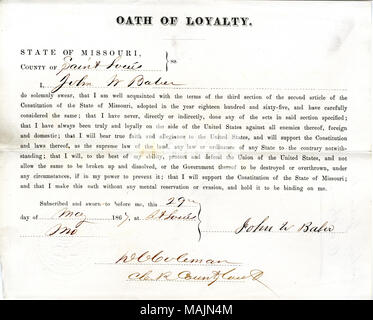 OATH OF LOYALTY.
STATE OF MISSOURI,
COUNTY OF Saint Louis ss
I, John W Baber
do solemnly swear, that I am well acquainted with the terms of the third section of the second article of the
Constitution of the State of Missouri, adopted in the year eighteen hundred and sixty-five, and have carefully
considered the same; that I have never, directly or indirectly, done any of the acts in said section specified;
that I have always been truly and loyally on the side of the United States against all enemies thereof, foreign
and domestic; that I will bear true faith and allegiance to the United States, and will support the Constitution
and laws thereof, as the supreme law of the land, any law or ordinance of any State to the contrary notwith-
standing; that I will, to the best of my ability, protect and defend the Union of the United States, and not
allow the same to be broken up and dissolved, or the Government thereof to be destroyed or overthrown, under
any circumstances, if in my power to prevent it; that I will support the Constitution of the State of Missouri;
and that I make this oath without any mental reservation or evasion, and hold it to be binding on me.
Subscribed and sworn to before me, this 29th
day of May 1867, at St Louis
Mo
John W Baber
Coleman
Clerk County Court
alamy
Image ID: MAJN4M
www.alamy.com